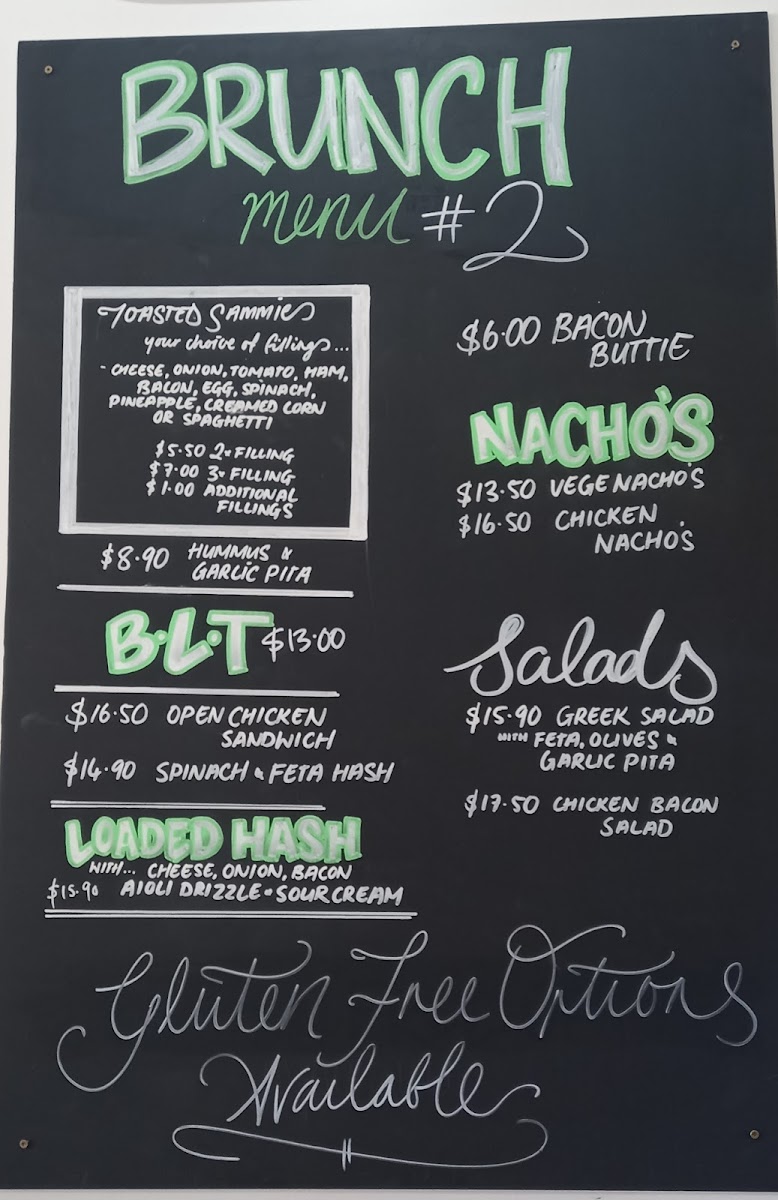 BRUNCH
menu #2
TOASTED SAMMIES
your choice of fillings...
- CHEESE, ONION, TOMATO, HAM,
BACON, EGG, SPINACH,
PINEAPPLE, CREAMED CORN
OR SPAGHETTI
$5.50 2x FILLING
$7.00 3x FILLING
$1.00 ADDITIONAL
FILLINGS
$8.90 HUMMUS &
GARLIC PITA
B.L.T $13.00
$16.50 OPEN CHICKEN
SANDWICH
$14.90 SPINACH & FETA HASH
LOADED HASH
WITH... CHEESE, ONION, BACON
$15.90 AIOLI DRIZZLE & SOUR CREAM
$6.00 BACON
BUTTIE
NACHO'S
$13.50 VEGE NACHO'S
$16.50 CHICKEN
NACHO'S
Salads
$15.90 GREEK SALAD
WITH FETA, OLIVES &
GARLIC PITA
$17.50 CHICKEN BACON
SALAD
Gluten Free Options
Available